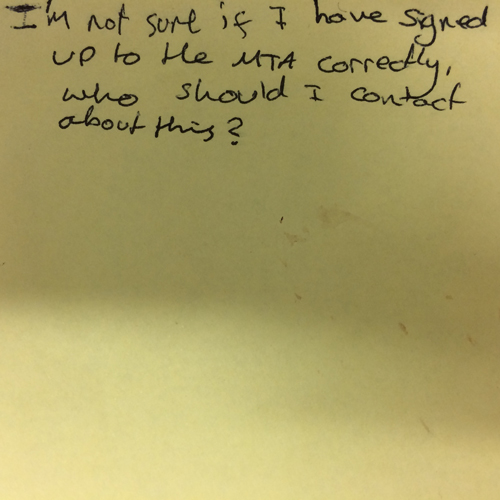 I'm not sure if I have signed
up to the MTA correctly,
who should I contact
about this?